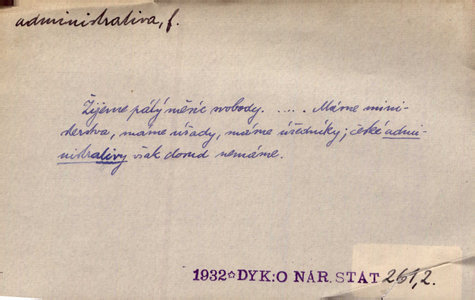 administrativa, f.
Žijeme pátý měsíc svobody. ..... Máme mini-
sterstva, máme úřady, máme úředníky; české admi-
nistrativy však dosud nemáme.
1932☆DYK: O NÁR. STÁT 261,2.